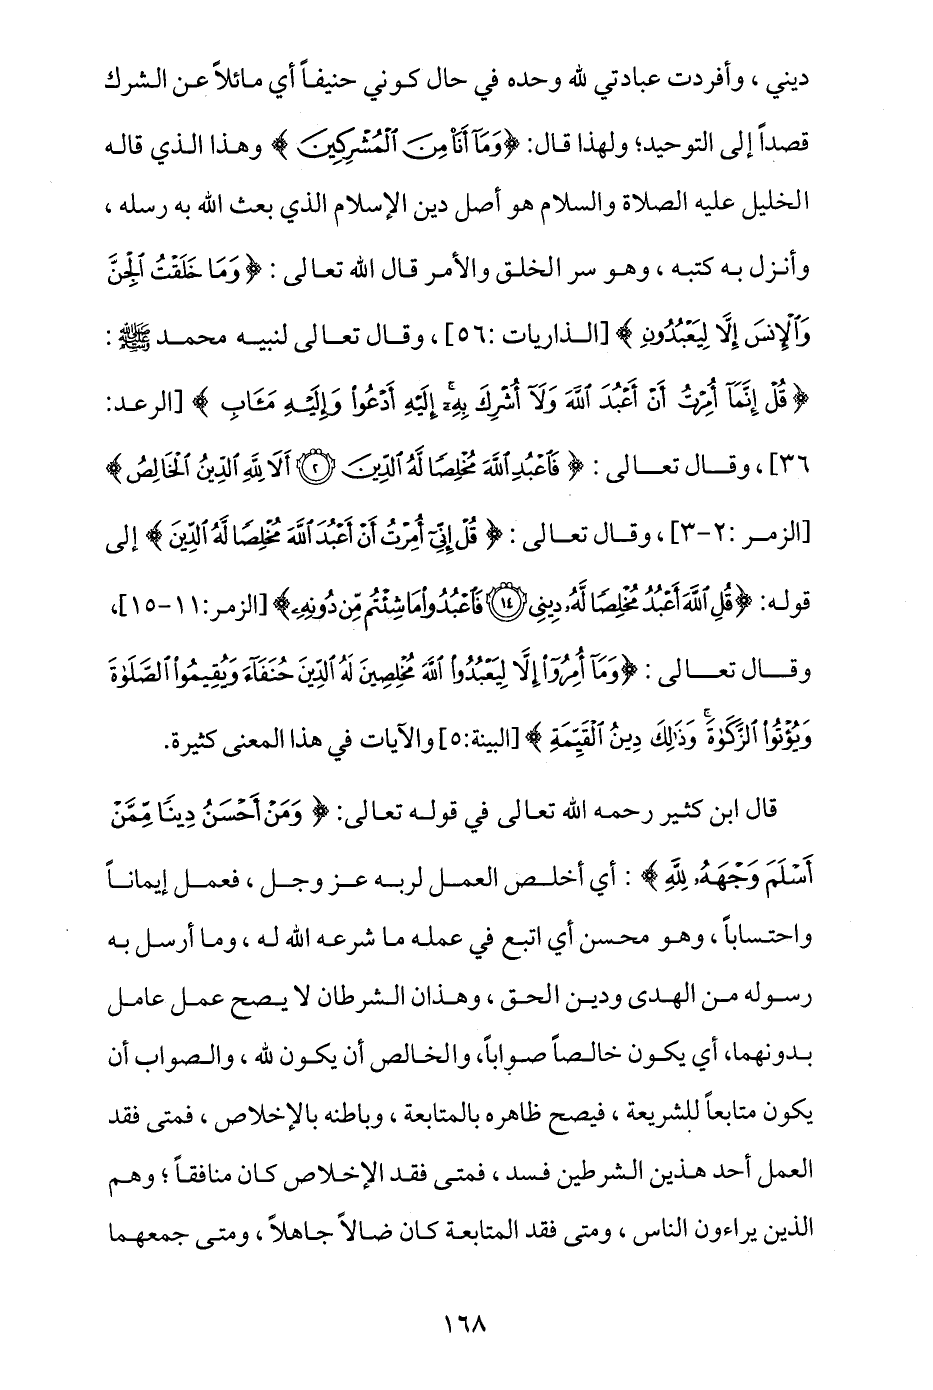 ديني ، وأفردت عبادتي لله وحده في حال كوني حنيفاً أي مائلاً عن الشرك
قصداً إلى التوحيد؛ ولهذا قال: ﴿وَمَآ أَنَا۠ مِنَ ٱلْمُشْرِكِينَ ﴾ وهذا الذي قاله
الخليل عليه الصلاة والسلام هو أصل دين الإسلام الذي بعث الله به رسله ،
وأنزل به كتبه ، وهو سر الخلق والأمر قال الله تعالى : ﴿ وَمَا خَلَقْتُ ٱلْجِنَّ
وَٱلْإِنسَ إِلَّا لِيَعْبُدُونِ ﴾ [الذاريات :٥٦] ، وقال تعالى لنبيه محمد ﷺ :
﴿ قُلْ إِنَّمَآ أُمِرْتُ أَنْ أَعْبُدَ ٱللَّهَ وَلَآ أُشْرِكَ بِهِۦٓ ۚ إِلَيْهِ أَدْعُوا۟ وَإِلَيْهِ مَـَٔابِ ﴾ [الرعد:
٣٦] ، وقال تعالى : ﴿ فَٱعْبُدِ ٱللَّهَ مُخْلِصًا لَّهُ ٱلدِّينَ ۝٢ أَلَا لِلَّهِ ٱلدِّينُ ٱلْخَالِصُ ﴾
[الزمر :٢-٣] ، وقال تعالى : ﴿ قُلْ إِنِّىٓ أُمِرْتُ أَنْ أَعْبُدَ ٱللَّهَ مُخْلِصًا لَّهُ ٱلدِّينَ ﴾ إلى
قوله: ﴿قُلِ ٱللَّهَ أَعْبُدُ مُخْلِصًا لَّهُۥ دِينِى ۝١٤ فَٱعْبُدُوا۟ مَا شِئْتُم مِّن دُونِهِۦ﴾ [الزمر:١١-١٥]،
وقال تعالى : ﴿وَمَآ أُمِرُوٓا۟ إِلَّا لِيَعْبُدُوا۟ ٱللَّهَ مُخْلِصِينَ لَهُ ٱلدِّينَ حُنَفَآءَ وَيُقِيمُوا۟ ٱلصَّلَوٰةَ
وَيُؤْتُوا۟ ٱلزَّكَوٰةَ ۚ وَذَٰلِكَ دِينُ ٱلْقَيِّمَةِ ﴾ [البينة:٥] والآيات في هذا المعنى كثيرة.
قال ابن كثير رحمه الله تعالى في قوله تعالى: ﴿ وَمَنْ أَحْسَنُ دِينًا مِّمَّنْ
أَسْلَمَ وَجْهَهُۥ لِلَّهِ ﴾ : أي أخلص العمل لربه عز وجل ، فعمل إيماناً
واحتساباً ، وهو محسن أي اتبع في عمله ما شرعه الله له ، وما أرسل به
رسوله من الهدى ودين الحق ، وهذان الشرطان لا يصح عمل عامل
بدونهما، أي يكون خالصاً صواباً، والخالص أن يكون لله ، والصواب أن
يكون متابعاً للشريعة ، فيصح ظاهره بالمتابعة ، وباطنه بالإخلاص ، فمتى فقد
العمل أحد هذين الشرطين فسد ، فمتى فقد الإخلاص كان منافقاً ؛ وهم
الذين يراءون الناس ، ومتى فقد المتابعة كان ضالاً جاهلاً ، ومتى جمعهما
١٦٨